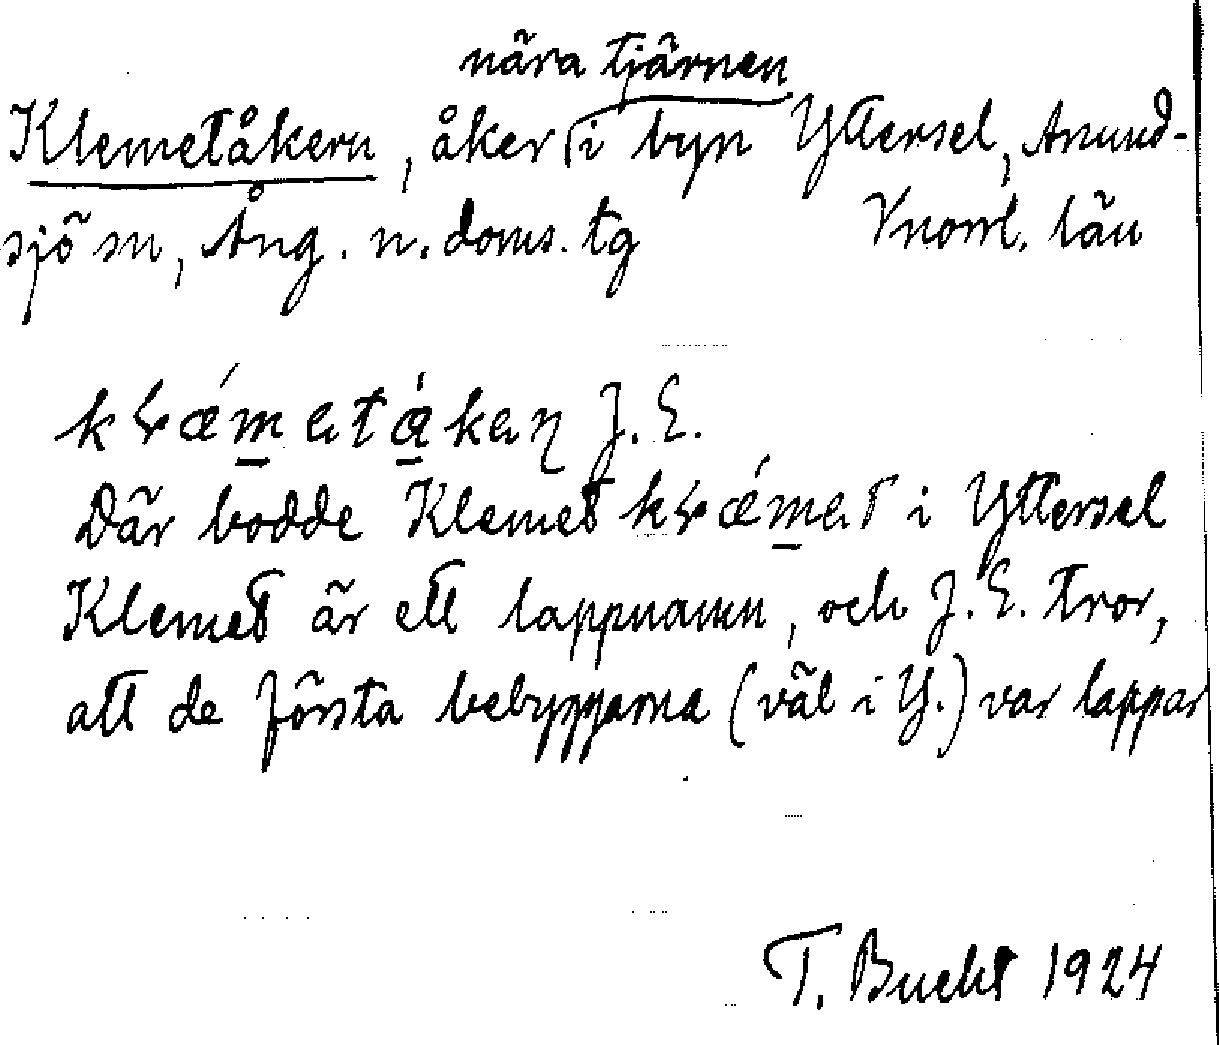 nära tjärnen
Klemetåkern, åker i byn Yttersel, Anund-
sjö sn, Ång. n. doms. tg Vnorrl. län
J. E.
Där bodde Klemet i Yttersel
Klemet är ett lappnamn, och J. E. tror,
att de första bebyggarna (väl i Y.) var lappar
T. Bucht 1924